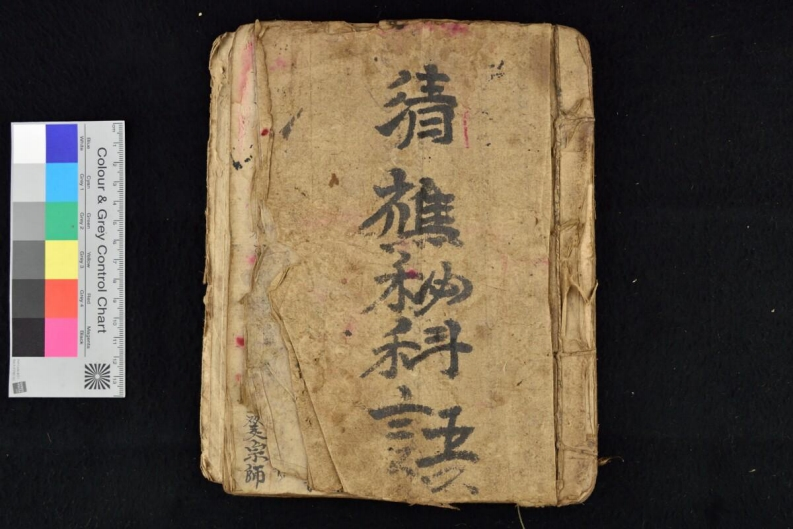 清醮秘科語
宗師
Colour & Grey Control Chart
Blue Cyan Green Yellow Red Magenta
White Grey 1 Grey 2 Grey 3 Grey 4 Black